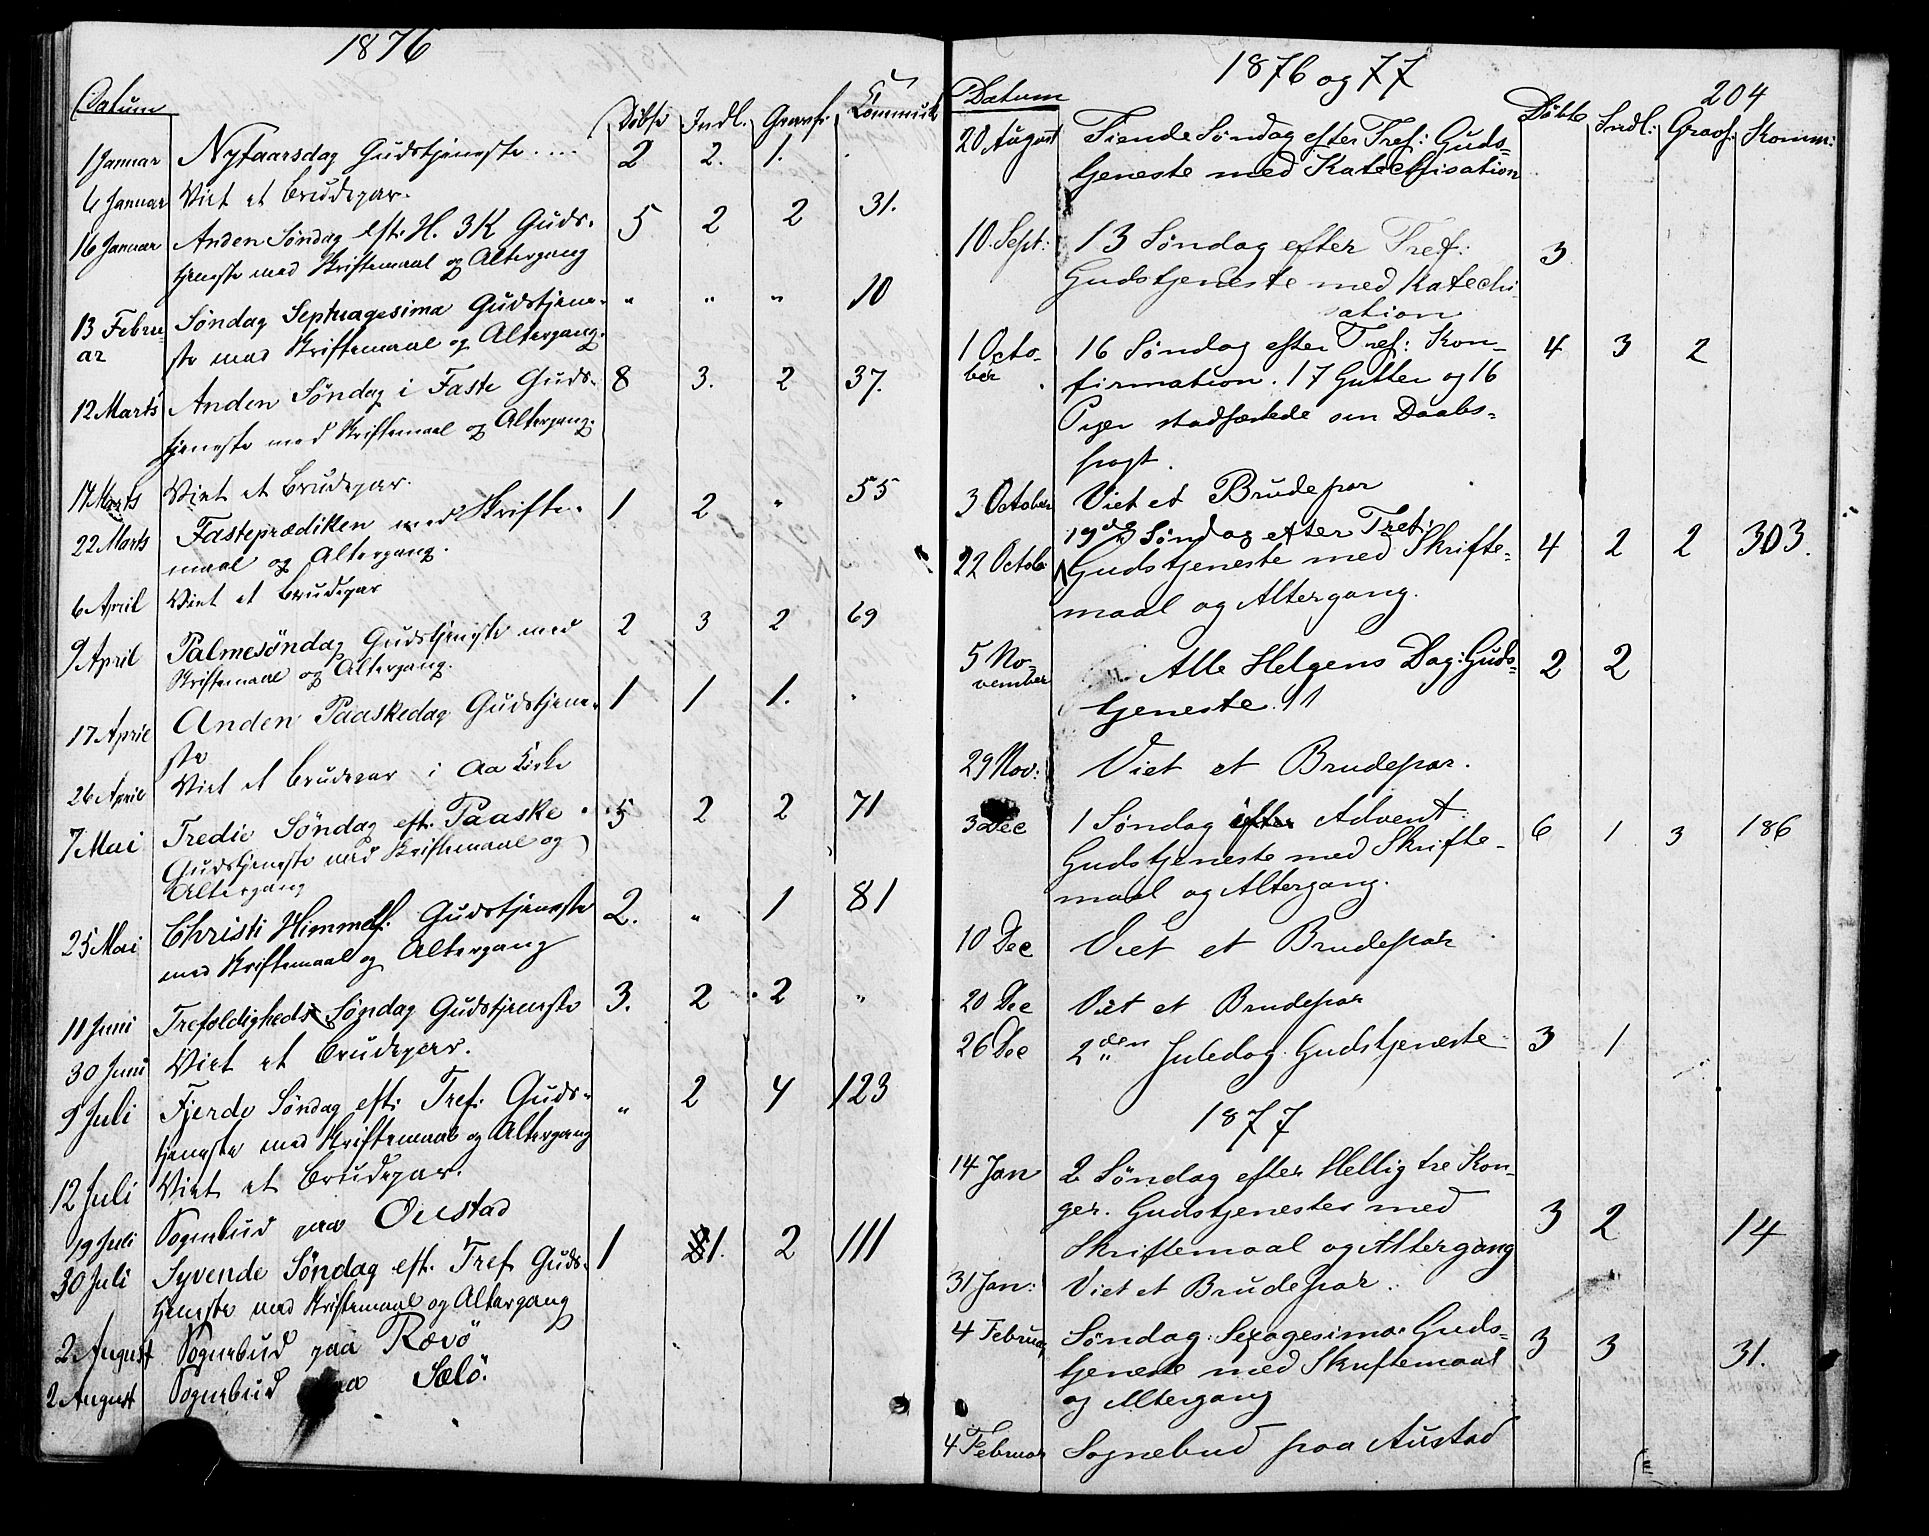 1876
Datum Döbte Indl. Gravf. Kommunik
1 Januar Nytaarsdag Gudstjeneste.... 2 2. 1. .
6 Januar Viet et Brudepar.
16 Januar Anden Søndag eft. H. 3K Guds- 5 2 2 31.
tjeneste med Skriftemaal og Altergang
13 Febru- Søndag Septuagesima Gudstjene- " " " 10
ar ste med Skriftemaal og Altergang.
12 Marts Anden Søndag i Faste Guds- 8 3. 2 37.
tjeneste med Skriftemaal og Altergang.
Marts Viet et Brudepar.
22 Marts Fasteprædiken med Skrifte- 1 2 " 55
maal og Altergang.
6 April Viet et Brudepar
9 April Palmesöndag Gudstjeneste med 2 3 2 69
Skriftemaal og Altergang.
17 April Anden Paaskedag Gudstjene- 1 1 1. .
ste
26 April Viet et Brudepar i Aa Kirke
7 Mai Tredie Söndag eft. Paaske 5 2 2 71
Gudstjeneste med Skriftemaal og
Altergang
25 Mai Christi Himmelf. Gudstjeneste 2. " 1 81
med Skriftemaal og Altergang
11 Juni Trefoldigheds Søndag Gudstjeneste 3. 2 2 "
30 Juni Viet et Brudepar.
9 Juli Fjerde Söndag eft. Tref. Guds- " 2 4 123
tjeneste med Skriftemaal og Altergang
12 Juli Viet et Brudepar.
19 Juli Sognebud paa Oustad
30 Juli Syvende Söndag eft. Tref. Guds- 1 1. 2 111
tjeneste med Skriftemaal og Altergang
2 August Sognebud paa Rævö
2 August Sognebud paa Sælö.
1876 og 77
204
Datum Döbte Indl: Gravf: Komm:
20 August Tiende Søndag efter Tref: Guds-
tjeneste med Katechisation
10. Sept: 13 Søndag efter Tref: 3
Gudstjeneste med Katechi-
sation
1 Octo- 16 Søndag efter Tref: Kon- 4 3 2
ber firmation. 17 Gutter og 16
Piger stadfæstede sin Daabs-
pagt.
3 October Viet et Brudepar
19de Søndag efter Tref:
22 Octob: Gudstjeneste med Skrifte- 4 2 2 303.
maal og Altergang.
5 No- Alle Helgens Dag: Guds- 2 2
vember tjeneste.
29 Nov: Viet et Brudepar.
3 Dec 1 Søndag efter Advent. 6 1 3 186
Gudstjeneste med Skrifte-
maal og Altergang.
10 Dec Viet et Brudepar
20 Dec Viet et Brudepar
26 Dec 2den Juledag. Gudstjeneste 3 1
1877
14 Jan 2 Søndag efter Hellig tre Kon-
ger. Gudstjeneste med 3 2 14
Skriftemaal og Altergang
31 Jan: Viet et Brudepar.
4 Februar Søndag: Sexagesima: Guds- 3 3 31.
tjeneste med Skriftemaal
og Altergang
4 Februar Sognebud paa Austad